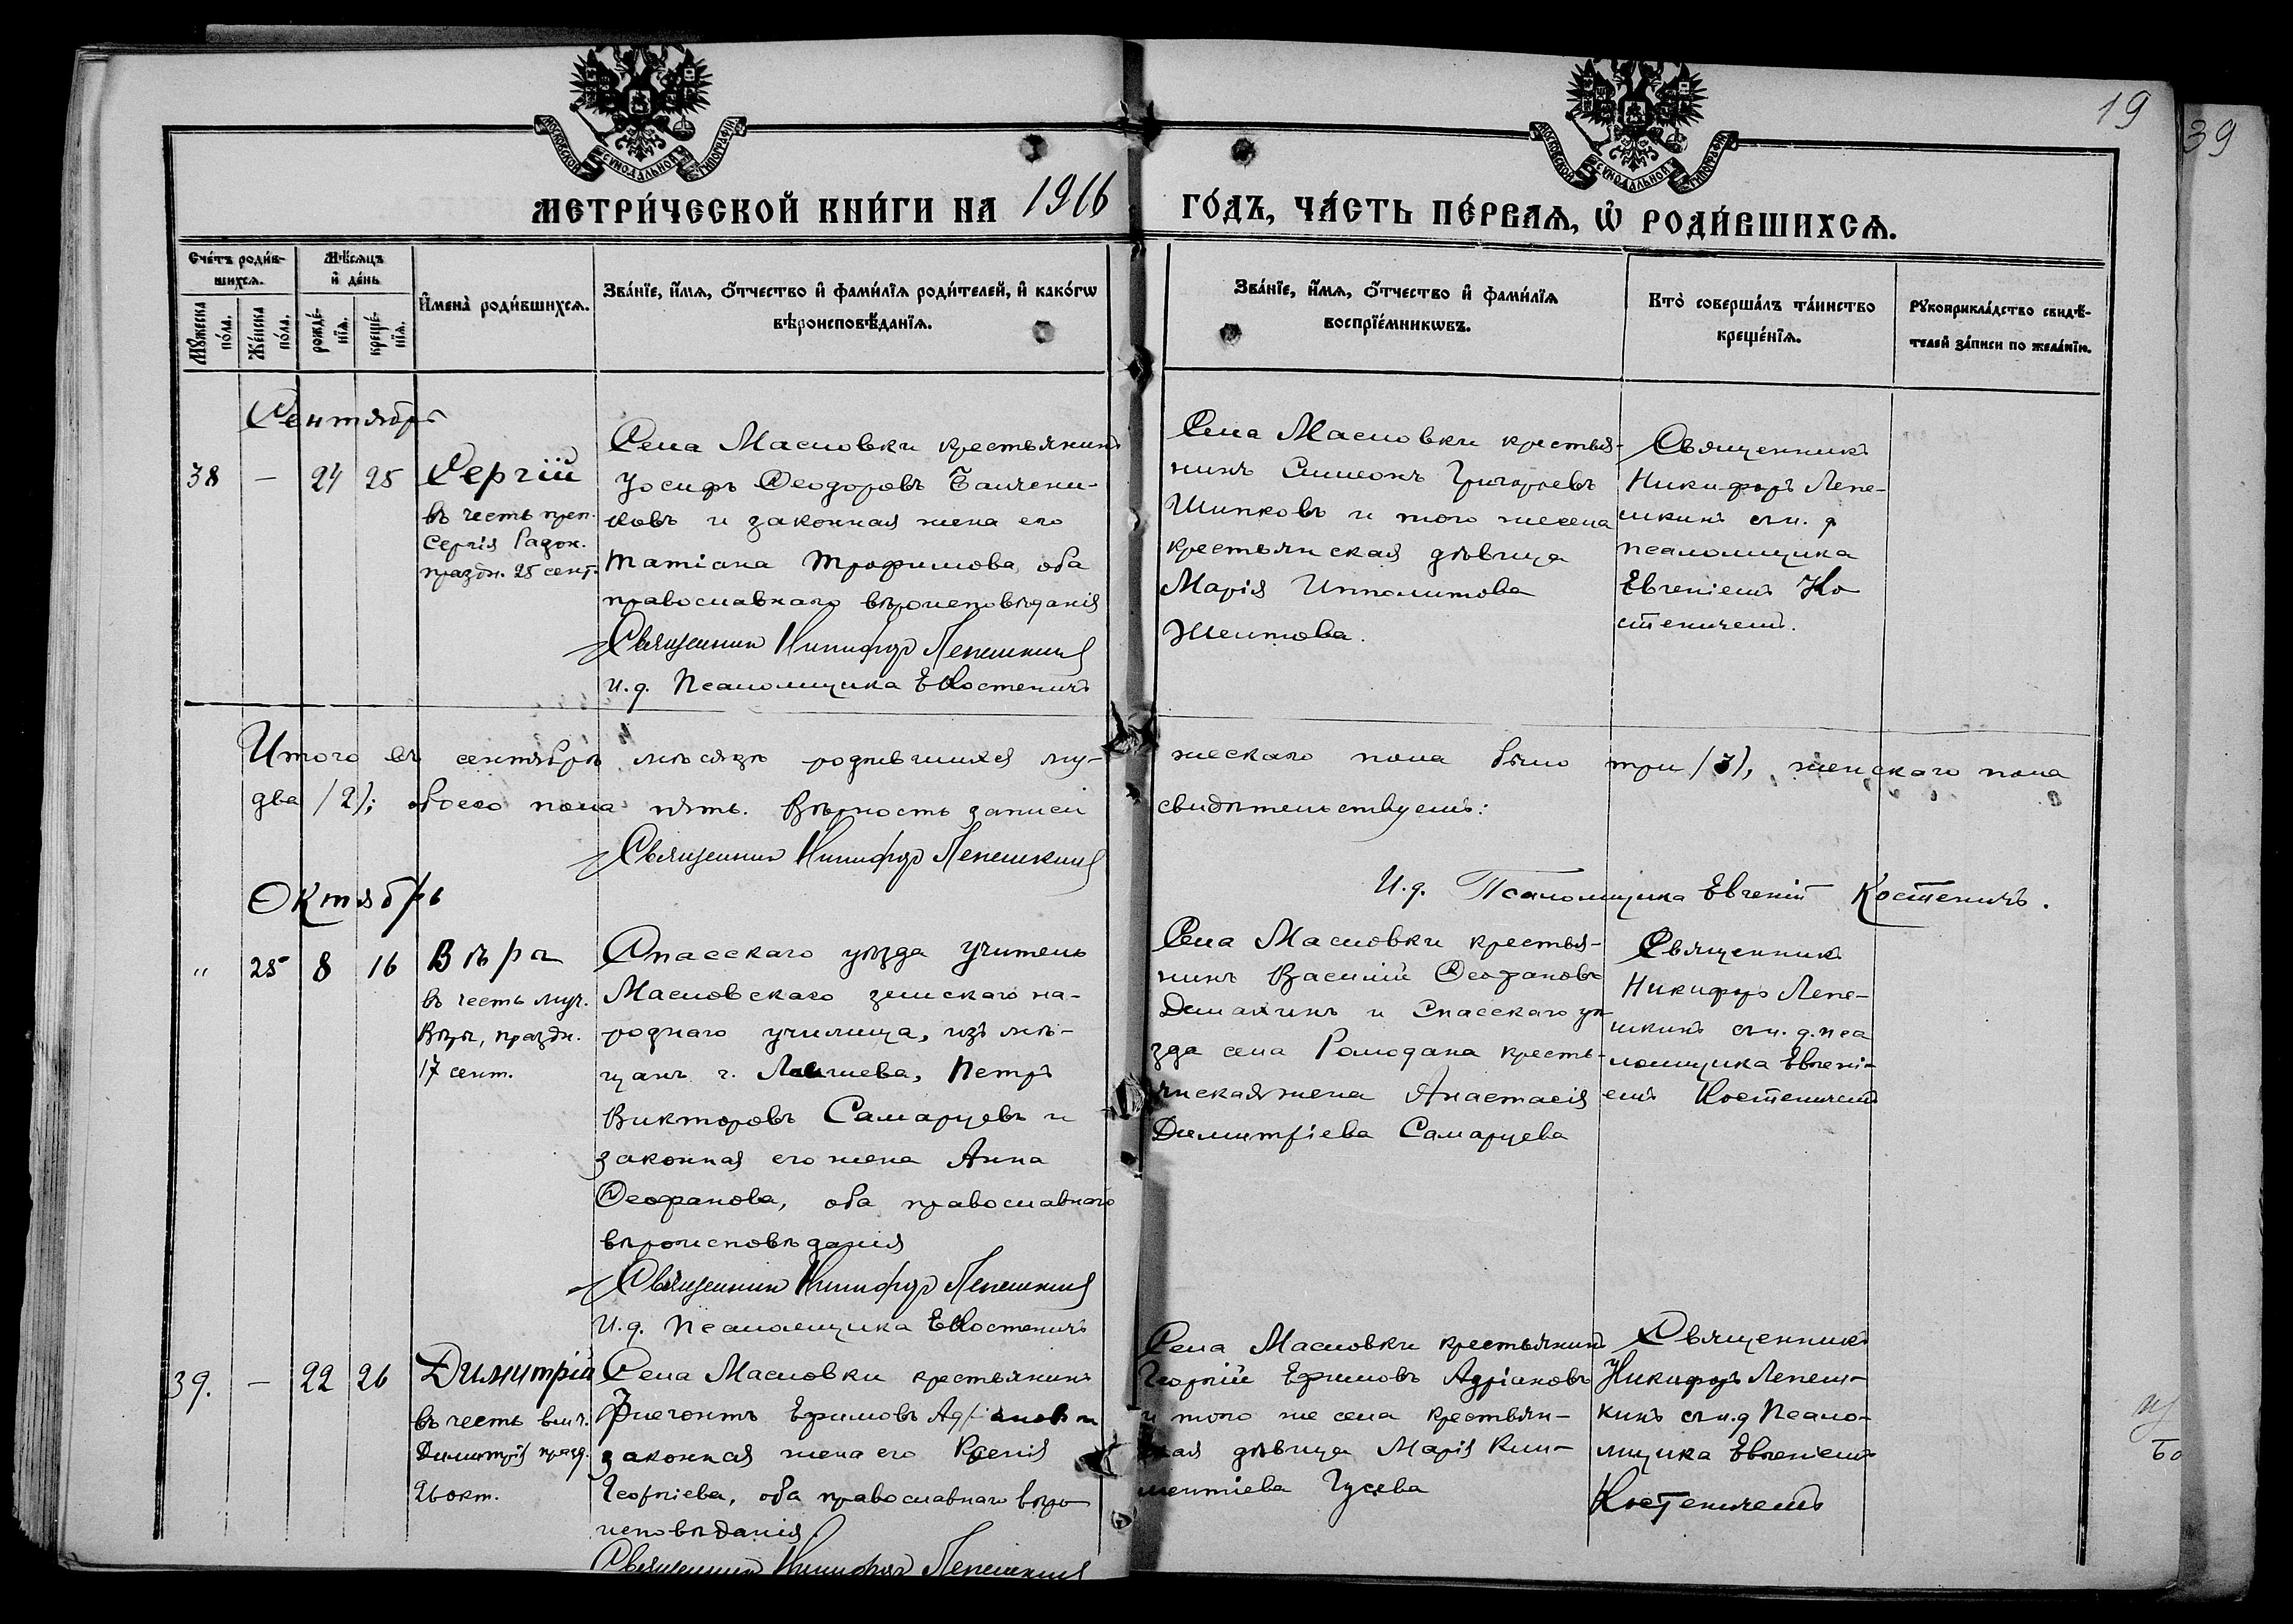 19
39
МОСКОВСКОЙ СѴНОДАЛЬНОЙ ТИПОГРАФІИ
МОСКОВСКОЙ СѴНОДАЛЬНОЙ ТИПОГРАФІИ
МЕТРИ́ЧЕСКОЙ КНИ́ГИ НА 1916 ГО́ДЪ, ЧА́СТЬ ПЕ́РВАѦ, Ѡ҆ РОДИ́ВШИХСѦ.
Сче́тъ роди́в-
шихсѧ.
Мꙋ́жеска по́ла.
Же́нска по́ла.
Мѣ́сѧцъ
и҆ де́нь
рожде́-
нїѧ.
креще́-
нїѧ.
И҆мена̀ роди́вшихсѧ.
Зва́нїе, и҆́мѧ, ѻ҆́тчество и҆ фами́лїѧ роди́телей, и҆ како́гѡ
вѣроисповѣ́данїѧ.
Зва́нїе, и҆́мѧ, ѻ҆́тчество и҆ фами́лїѧ
воспрїе́мникѡвъ.
Кто̀ соверша́лъ та́инство
креще́нїѧ.
Рꙋкоприкла́дство свидѣ́-
телей за́писи по жела́нїю.
Сентябрь
38 — 24 25 Сергій
въ честь преп.
Сергія Радон.
праздн. 25 сент.
Села Масловки крестьянинъ
Іосифъ Ѳеодоровъ
ковъ и законная жена его
Татіана Трофимова, оба
православнаго вѣроисповѣданія
Священникъ Никифоръ Лепешкинъ
И.д. Псаломщика Е Костеничъ
Села Масловки крестья-
нинъ Симеонъ Григорьевъ
Шипковъ и того же села
крестьянская дѣвица
Марія Ипполитова
Желтова.
Священникъ
Никифоръ Лепе-
шкинъ съ и. д
псаломщика
Евгеніемъ Ко
стеничемъ.
Итого въ сентябрѣ мѣсяцѣ родившихся му- жескаго пола было три (3), женскаго пола
два (2); обоего пола пять. Вѣрность записи свидѣтельствуемъ:
Священникъ Никифоръ Лепешкинъ
И.д. Псаломщика Евгеній Костеничъ.
Октябрь
" 25 8 16 Вѣра
въ честь муч.
Вѣры, праздн.
17 сент.
Спасскаго уѣзда учитель
Масловскаго земскаго на-
роднаго училища, изъ мѣ-
щанъ г. Лаишева, Петръ
Викторовъ Самарцевъ и
законная его жена Анна
Ѳеофанова, оба православнаго
вѣроисповѣданія
Священникъ Никифоръ Лепешкинъ
И.д. Псаломщика Е Костеничъ
Села Масловки крестья-
нинъ Василій Ѳеофановъ
и Спасскаго уѣ-
зда села Ромодана кресть-
янская жена Анастасія
Димитріева Самарцева
Священникъ
Никифоръ Лепе-
шкинъ съ и. д. пса
ломщика Евгені-
емъ Костеничемъ
39. — 22 26 Димитрій
въ честь влмч.
Димитрія празд.
26 окт.
Села Масловки крестьянинъ
Флегонтъ Ефимовъ Адріановъ и
законная жена его Ксенія
Георгіева, оба православнаго вѣро
исповѣданія.
Священникъ Никифоръ Лепешкинъ
Села Масловки крестьянинъ
Георгій Ефимовъ Адріановъ
и того же села крестьян-
ская дѣвица Марія Кли-
ментіева Гусева
Священникъ
Никифоръ Лепеш-
кинъ съ и.д Псало-
мщика Евгеніемъ
Костеничемъ